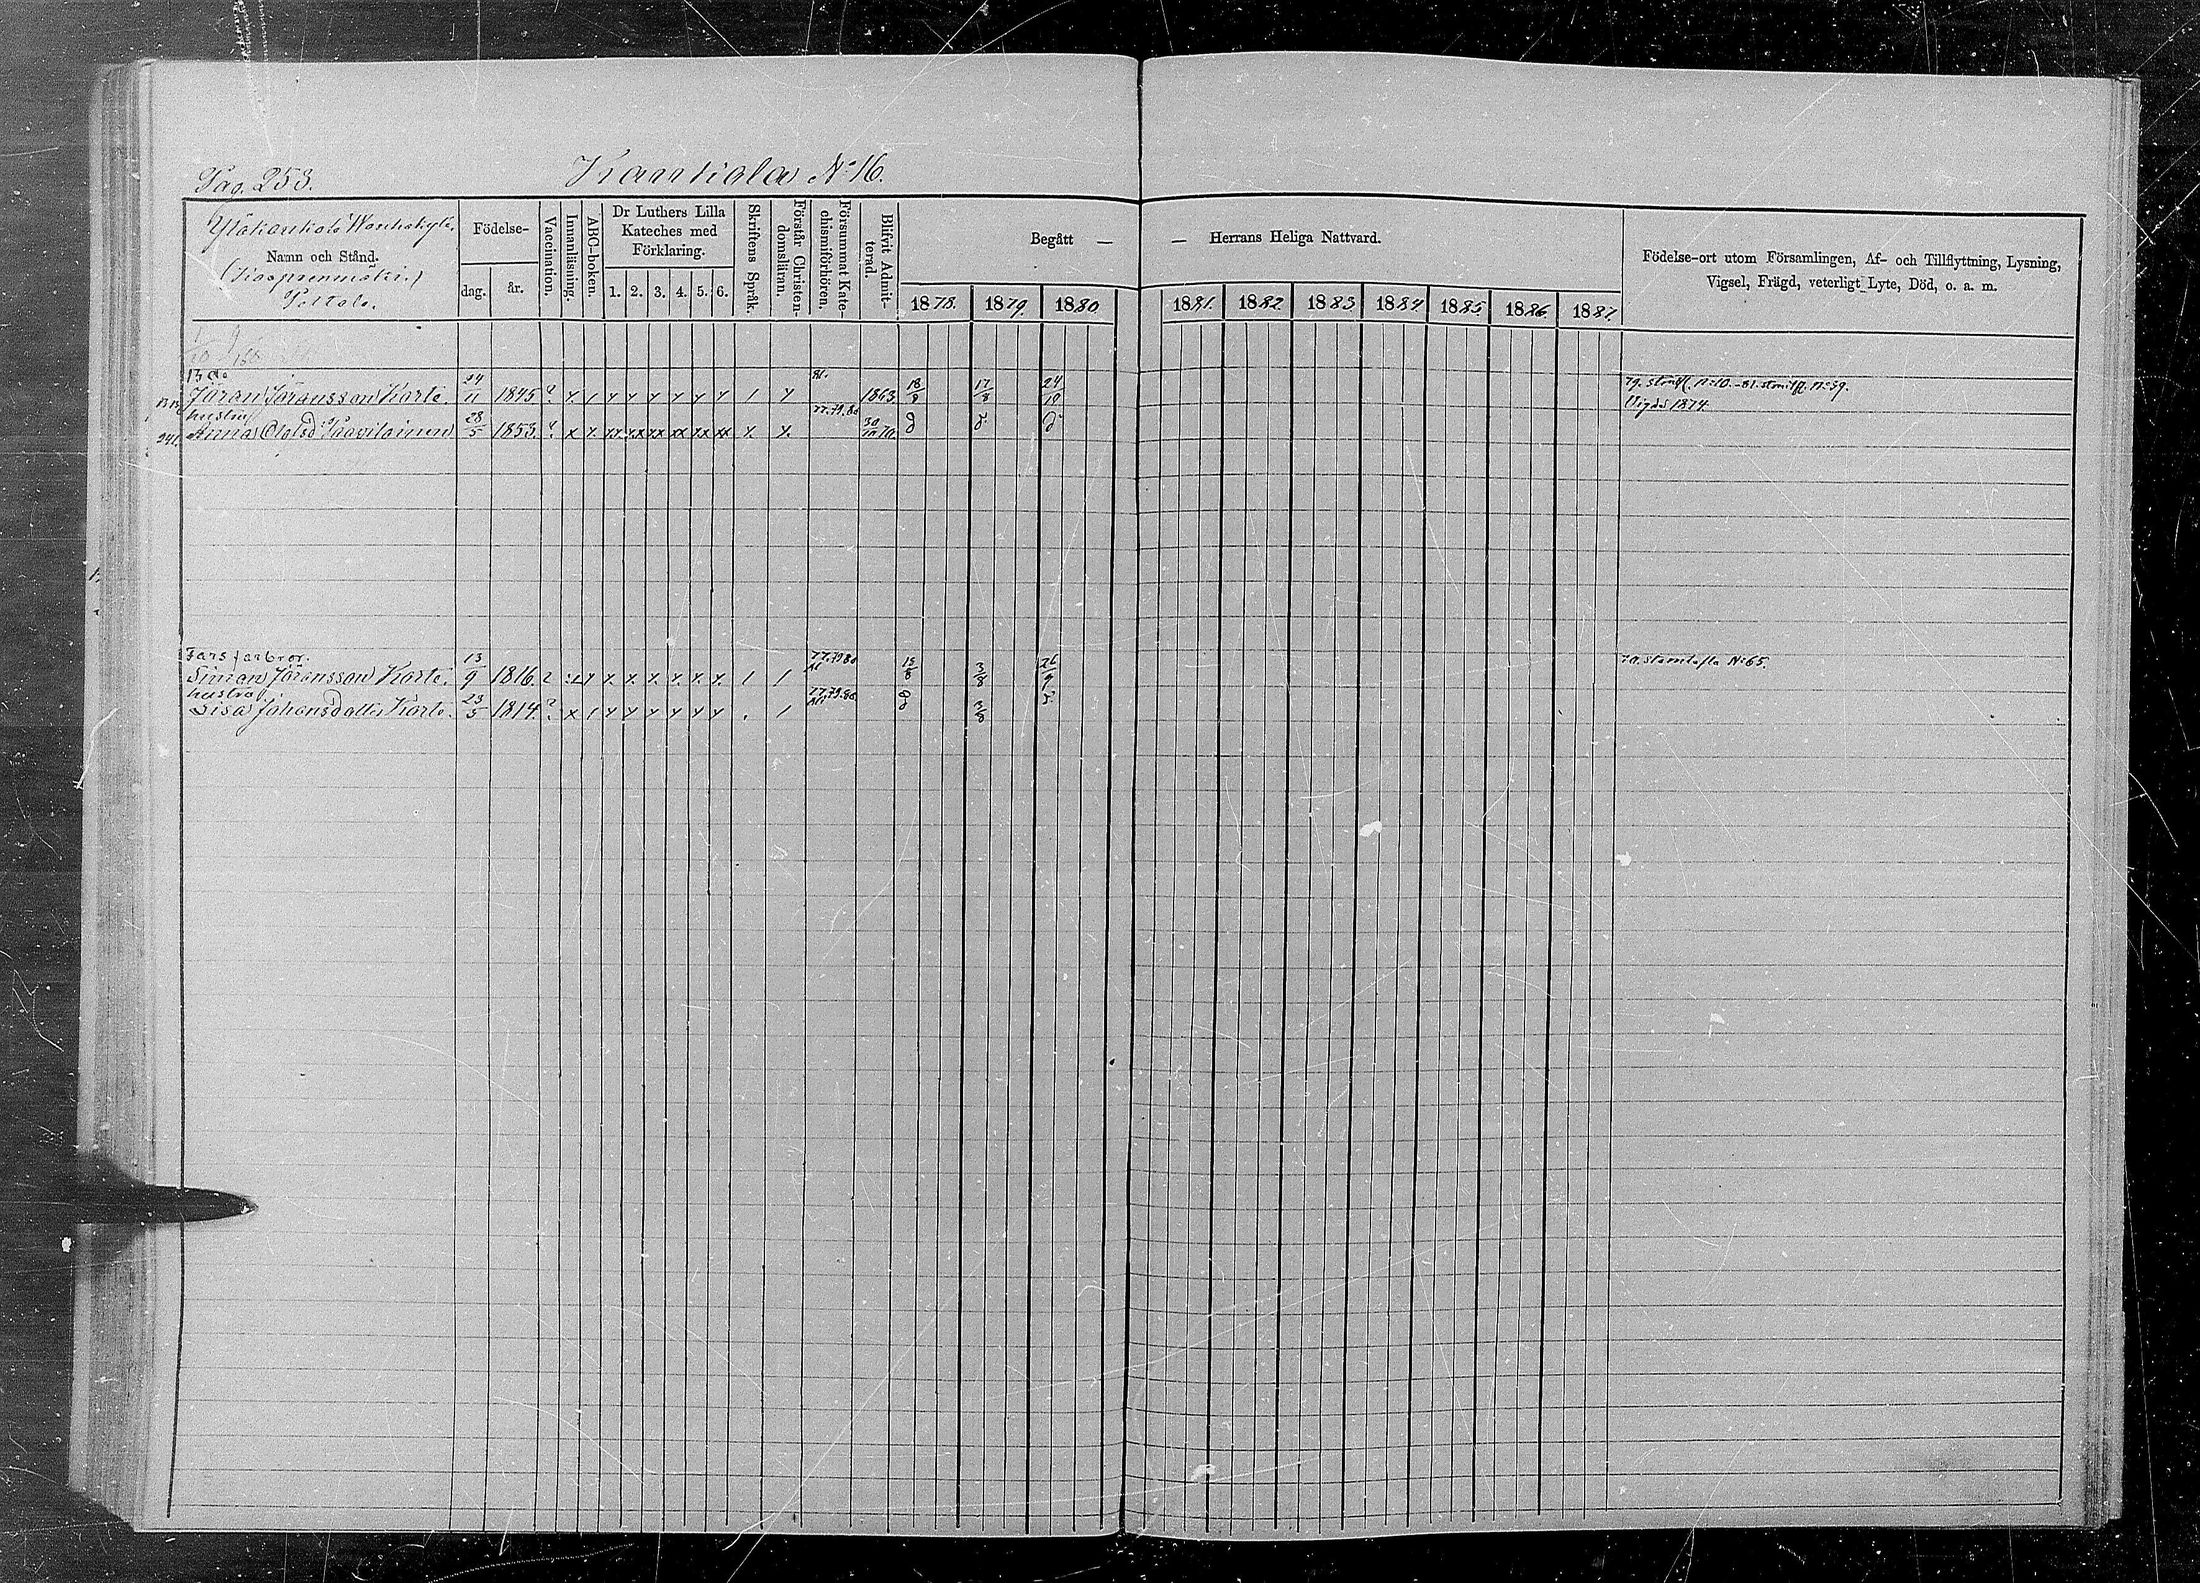 Pag. 253.
Kankiala No 16.
Namn och Stånd.
Födelse-
dag.
år.
Vaccination.
Innanläsning.
ABC-boken.
Dr Luthers Lilla
Kateches med
Förklaring.
1. 2. 3. 4. 5. 6.
Skriftens Språk.
Förstår Christen-
domsläran.
Försummat Kate-
chismiförhören.
Blifvit Admit-
terad.
Begått —
— Herrans Heliga Nattvard.
1878. 1879. 1880 1881. 1882. 1883. 1884. 1885. 1886. 1887.
Födelse-ort utom Församlingen, Af- och Tillflyttning, Lysning,
Vigsel, Frägd, veterligt Lyte, Död, o. a. m.
Göran Göransson Korte. 24/11 1845 1863. 18/8 17/8 24/10
Vigda 1874
hustru
Anna Olofsd Paavilainen 28/5 1853. 77.79.80 30/10 70.
Fars farbror.
Simon Göransson Korte. 13/9 1816. 77.79.80 3/8 26/9 70. Stamtafla No 65.
hustru
Lisa Johansdotter Korte. 23/5 1814. 77.79.80 3/8